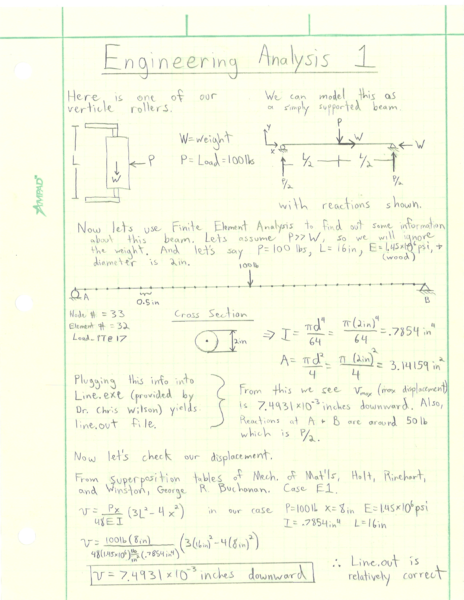 Engineering Analysis 1
Here is one of our
verticle rollers.
We can model this as
a simply supported beam.
L
W
P
W=weight
P=Load=100lbs
y
x
P
W
W
L/2
L/2
P/2
P/2
with reactions shown.
Now lets use Finite Element Analysis to find out some information
about this beam. Lets assume P>>W, so we will ignore
the weight. And let's say P=100 lbs, L=16in, E=1.45x10⁶psi, +
diameter is 2in.
(wood)
100lb
A
B
0.5in
Node #=33
Element #=32
Load-ITE 17
Cross Section
2in
⇒ I = πd⁴/64 = π(2in)⁴/64 = .7854 in⁴
A = πd²/4 = π(2in)²/4 = 3.14159 in²
Plugging this info into
Line.exe (provided by
Dr. Chris Wilson) yields
line.out file.
From this we see Vmax (max displacement)
is 7.4931x10⁻³ inches downward. Also,
Reactions at A + B are around 50 lb
which is P/2.
Now let's check our displacement.
From superposition tables of Mech. of Mat'ls, Holt, Rinehart,
and Winston, George R. Buchanan. Case E1.
v = Px/48EI (3L²-4x²)
in our case P=100lb x=8in E=1.45x10⁶psi
I=.7854in⁴ L=16in
v = 100lb(8in)/48(1.45x10⁶ lb/in²)(.7854in⁴) (3(16in)²-4(8in)²)
v = 7.4931x10⁻³ inches downward
∴ Line.out is
relatively correct
AMPAD